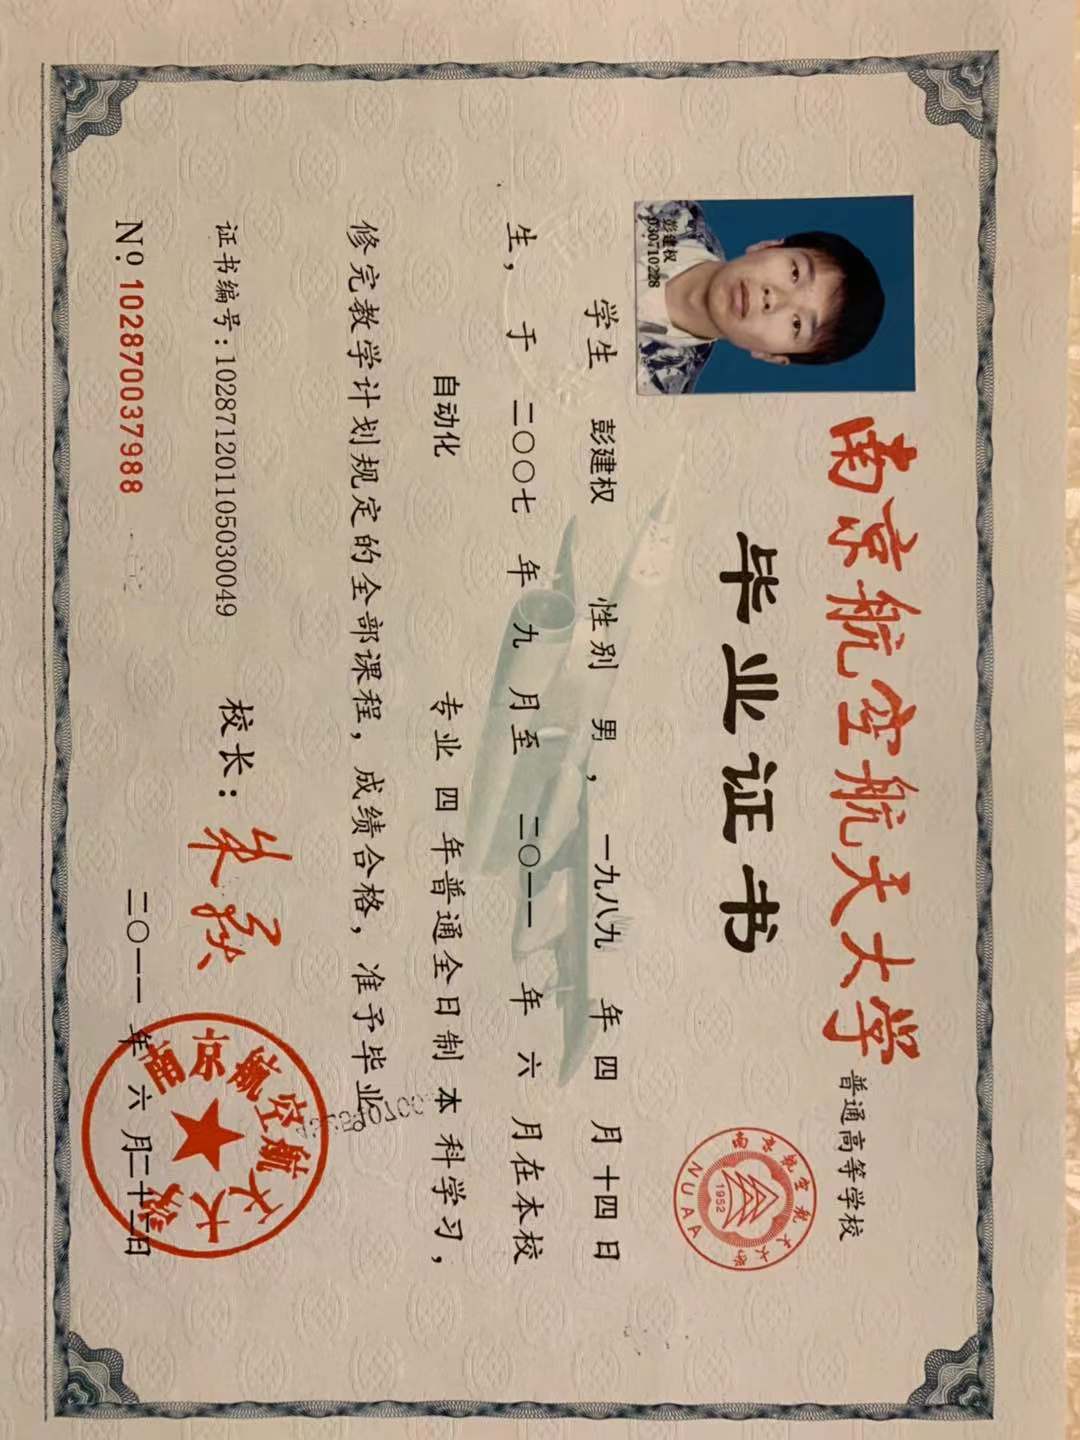 普通高等学校
南京航空航天大学
毕业证书
南京航空航天大学
1952
NUAA
彭建权
030710228
学生 彭建权 性别 男， 一九八九 年 四 月 十四 日
生， 于 二〇〇七 年 九 月至 二〇一一 年 六 月在本校
自动化 专业 四 年普通全日制 本 科学习，
修完教学计划规定的全部课程，成绩合格，准予毕业
证书编号：102871201105030049
校长：
二〇一一 年 六 月二十二日
南京航空航天大学
№ 102870037988